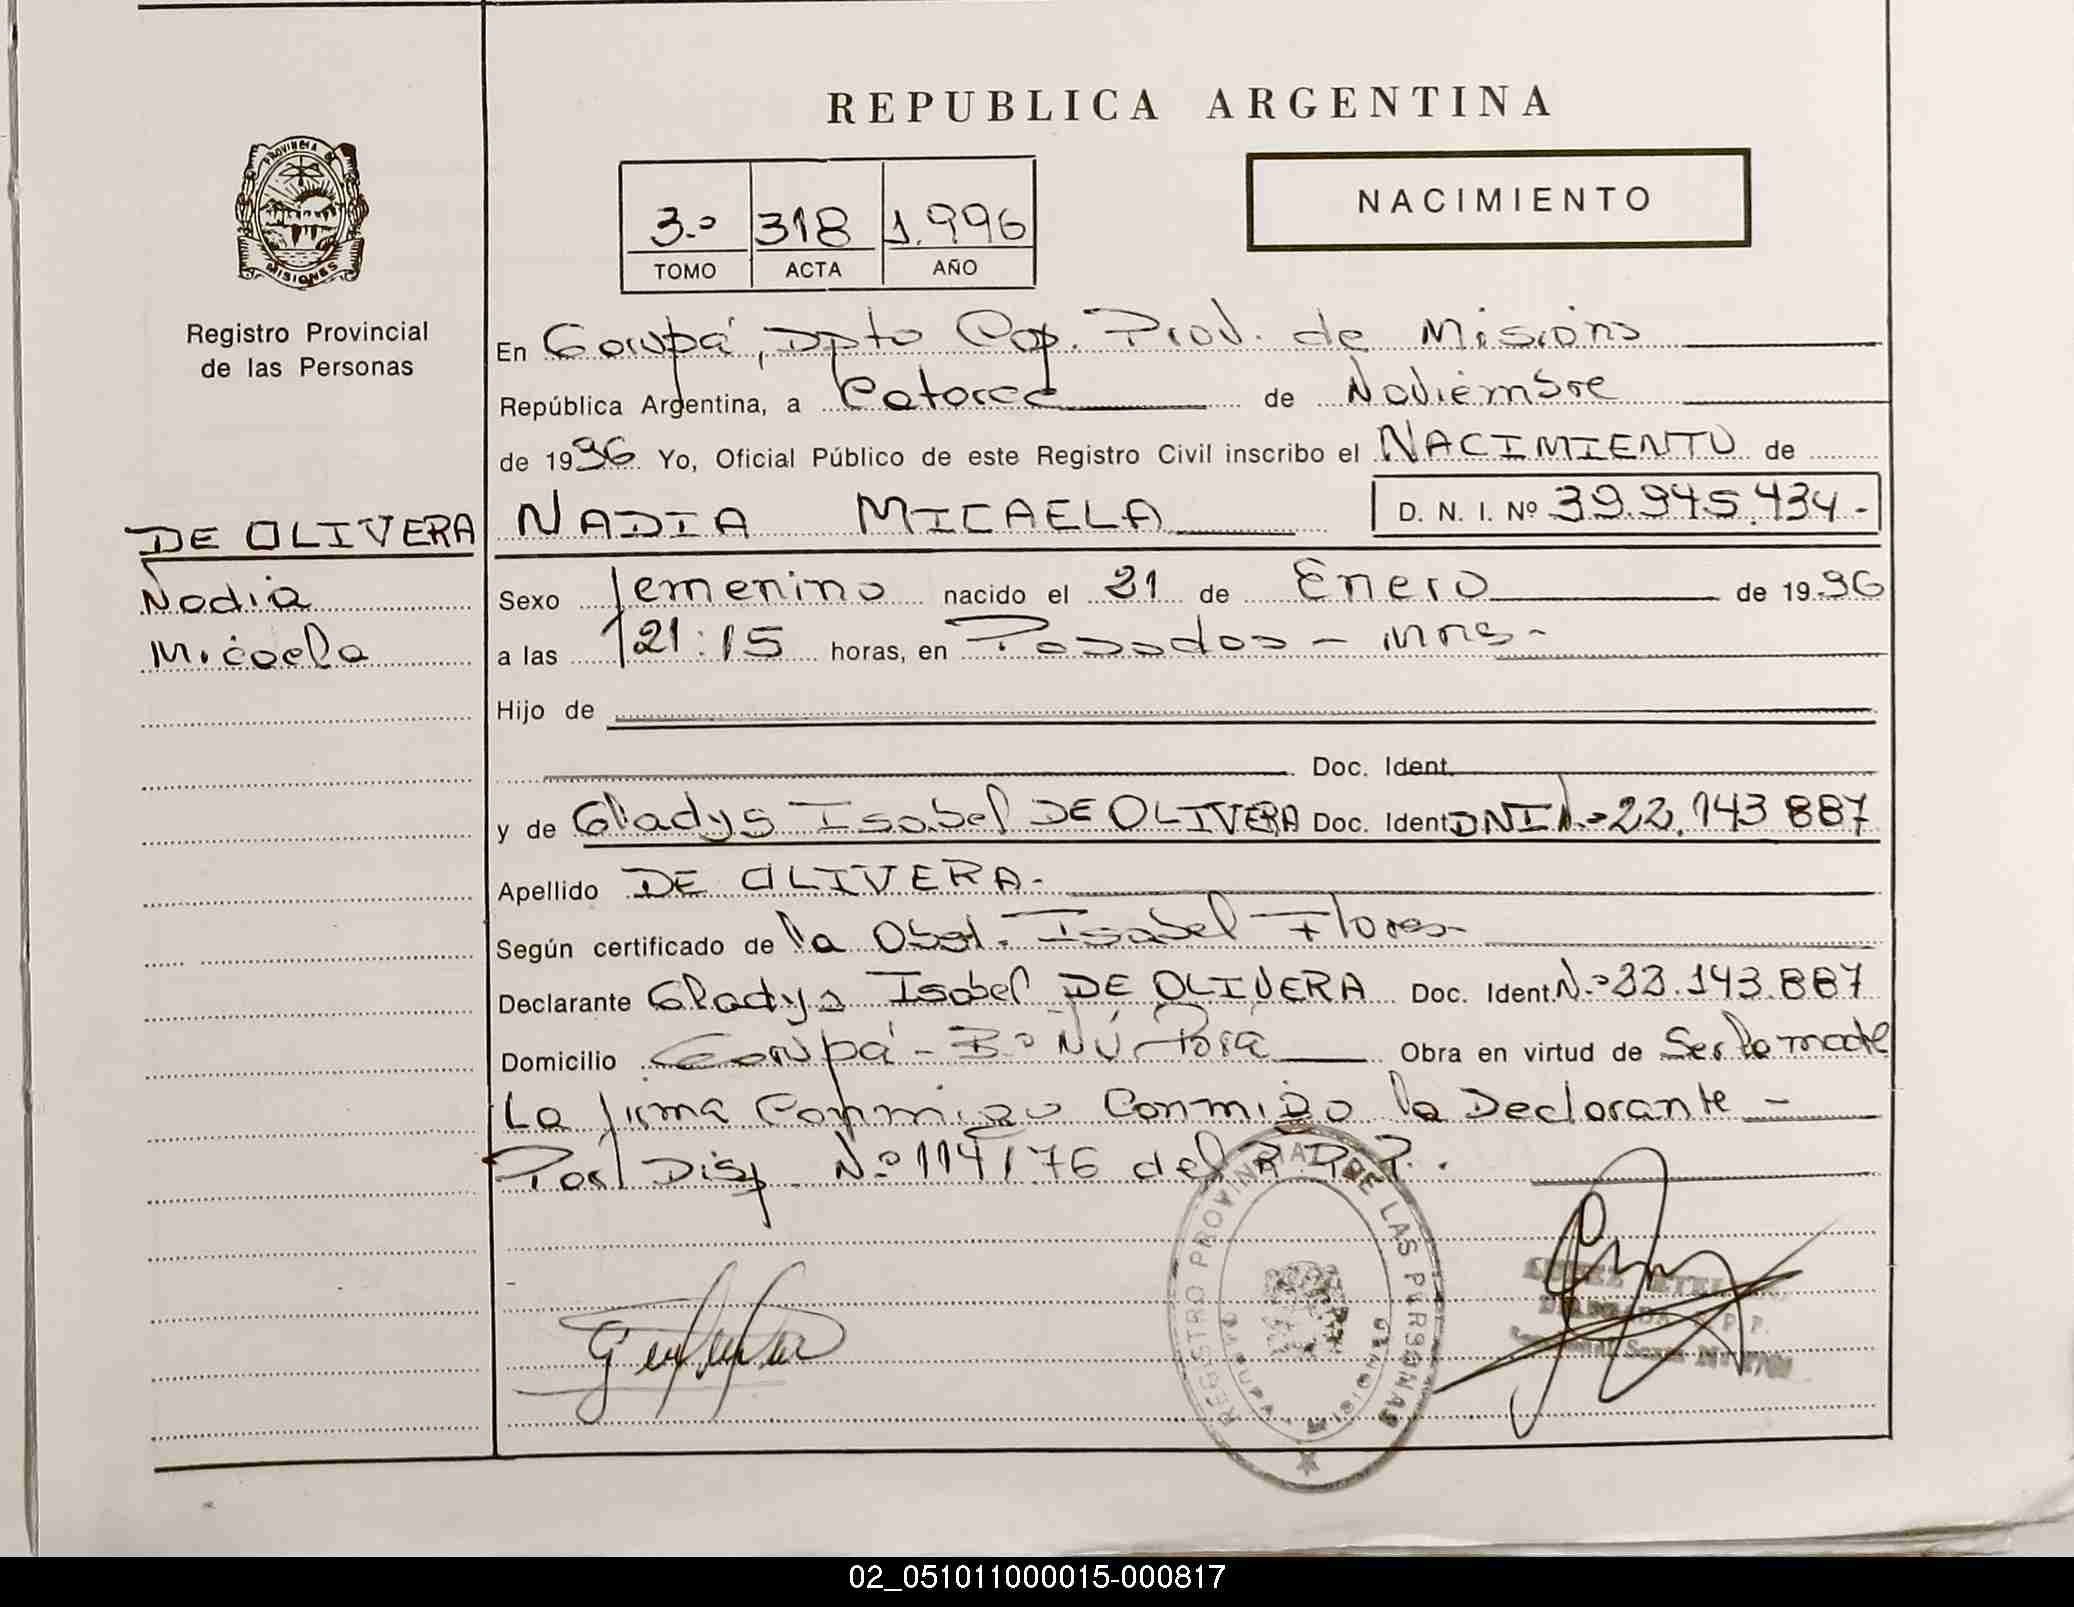 REPUBLICA ARGENTINA
PROVINCIA DE
MISIONES
Registro Provincial
de las Personas
3.º 318 1.996
TOMO ACTA AÑO
NACIMIENTO
En Garupá, Dpto Cap. Prod. de Misions
República Argentina, a Catorce de Noviembre
de 1996 Yo, Oficial Público de este Registro Civil inscribo el NACIMIENTO de
DE OLIVERA
Nadia
Micaela
NADIA MICAELA D. N. I. Nº 39.945.434.-
Sexo femenino nacido el 21 de Enero de 1996
a las 21:15 horas, en Posadas - mns-
Hijo de
Doc. Ident.
y de Gladys Isabel DE OLIVERA Doc. Ident DNI N.º 22.143 887
Apellido DE OLIVERA.-
Según certificado de la Obst. Isabel Flores-
Declarante Gladys Isabel DE OLIVERA Doc. Ident. N.º 22.143.887
Domicilio Garupá - Bº Ñú Porá Obra en virtud de Ser la madre
La firma Conmigo Conmigo la Declarante -
Por Disp. N.º 114/76 del R.P.P.
REGISTRO PROVINCIAL DE LAS PERSONAS
02_051011000015-000817